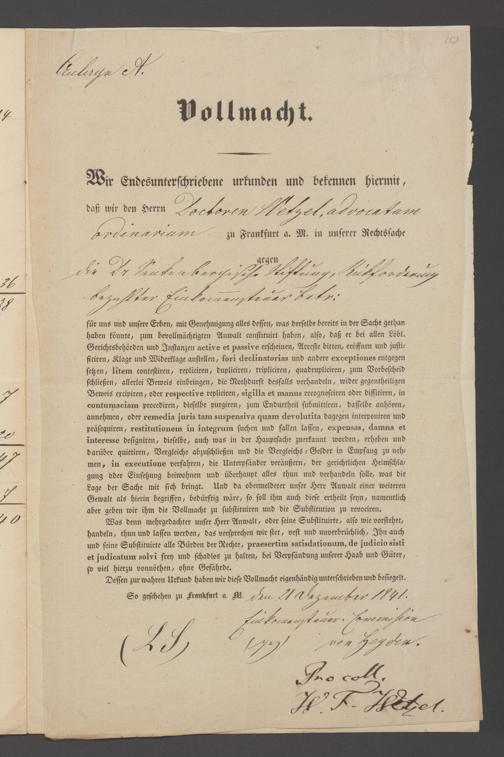 Anlage A.
Vollmacht.
Wir Endesunterschriebene urkunden und bekennen hiermit,
daß wir den Herrn Doctoren Wetzel, advocatum
ordinarium zu Frankfurt a. M. in unserer Rechtssache
gegen
die Dr Senkenbergische Stiftung, Rückforderung
bezahlter Einkommensteuer betr:
für uns und unsere Erben, mit Genehmigung alles dessen, was derselbe bereits in der Sache gethan
haben könnte, zum bevollmächtigten Anwalt constituirt haben, also, daß er bei allen Löbl.
Gerichtsbehörden und Instanzen active et passive erscheinen, Arreste bitten, eröffnen und justi-
ficiren, Klage und Widerklage anstellen, fori declinatorias und andere exceptiones entgegen
setzen, litem contestiren, repliciren, dupliciren, tripliciren, quadrupliciren, zum Vorbescheid
schließen, allerlei Beweis einbringen, die Nothdurft desfalls verhandeln, wider gegentheiligen
Beweis excipiren, oder respective repliciren, sigilla et manus recognosciren oder diffitiren, in
contumaciam procediren, dieselbe purgiren, zum Endurtheil submittiren, dasselbe anhören,
annehmen, oder remedia juris tam suspensiva quam devolutiva dagegen interponiren und
prosequiren, restitutionem in integrum suchen und fallen lassen, expensas, damna et
interesse designiren, dieselbe, auch was in der Hauptsache zuerkannt worden, erheben und
darüber quittiren, Vergleiche abzuschließen und die Vergleichs-Gelder in Empfang zu neh-
men, in executione verfahren, die Unterpfänder veräußern, der gerichtlichen Heimschla-
gung oder Einsetzung beiwohnen und überhaupt alles thun und verhandeln solle, was die
Lage der Sache mit sich bringt. Und da obermeldeter unser Herr Anwalt einer weiteren
Gewalt als hierin begriffen, bedürftig wäre, so soll ihm auch diese ertheilt seyn, namentlich
aber geben wir ihm die Vollmacht zu substituiren und die Substitution zu revociren.
Was denn mehrgedachter unser Herr Anwalt, oder seine Substituirte, also wie vorstehet,
handeln, thun und lassen werden, das versprechen wir stet, vest und unverbrüchlich, Ihn auch
und seine Substituirte alle Bürden der Rechte, praesertim satisdationum, de judicio sisti
et judicatum solvi frey und schadlos zu halten, bei Verpfändung unserer Haab und Güter,
so viel hierzu vonnöthen, ohne Gefährde.
Dessen zur wahren Urkund haben wir diese Vollmacht eigenhändig unterschrieben und besiegelt.
So geschehen zu Frankfurt a. M. den 21 Dezember 1841.
Einkommensteuer-Commission
(L S) (gez) von Heyden.
Pro coll.
W. F. Wetzel.